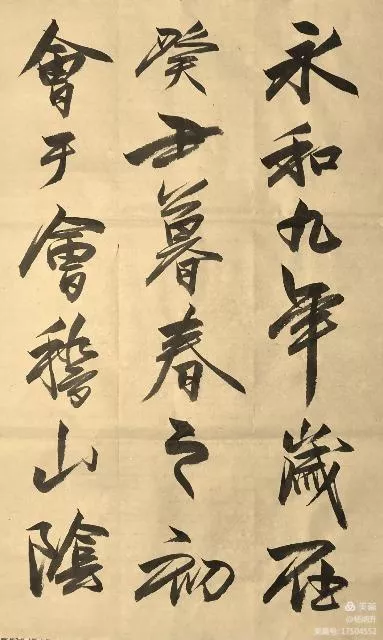 永和九年歲在
癸丑暮春之初
會于會稽山陰
美篇
美篇号:17504552